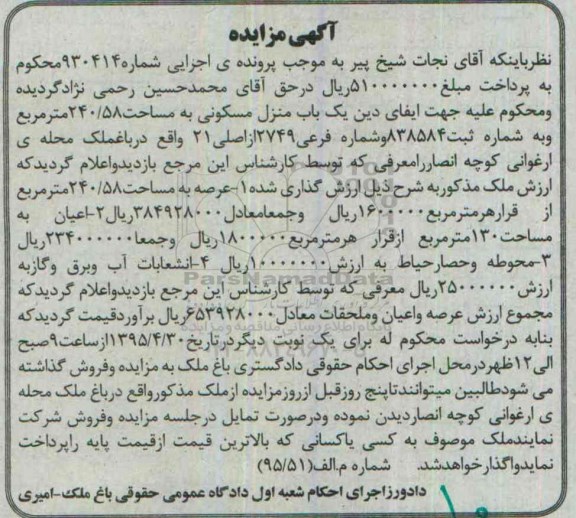 آگهی مزایده
نظرباینکه آقای نجات شیخ پیر به موجب پرونده ی اجرایی شماره۹۳۰۴۱۴محکوم
به پرداخت مبلغ۵۱۰۰۰۰۰۰۰ریال درحق آقای محمدحسین رحمی نژادگردیده
ومحکوم علیه جهت ایفای دین یک باب منزل مسکونی به مساحت۲۴۰/۵۸مترمربع
وبه شماره ثبت۸۳۸۵۸۴وشماره فرعی۲۷۴۹ازاصلی۲۱ واقع درباغملک محله ی
ارغوانی کوچه انصاررامعرفی که توسط کارشناس این مرجع بازدیدواعلام گردیدکه
ارزش ملک مذکوربه شرح ذیل ارزش گذاری شده۱-عرصه به مساحت۲۴۰/۵۸مترمربع
از قرارهرمترمربع۱۶۰۰۰۰۰ریال وجمعامعادل۳۸۴۹۲۸۰۰۰ریال۲-اعیان به
مساحت۱۳۰مترمربع ازقرار هرمترمربع۱۸۰۰۰۰۰ریال وجمعا۲۳۴۰۰۰۰۰۰ریال
۳-محوطه وحصارحیاط به ارزش۱۰۰۰۰۰۰۰ریال ۴-انشعابات آب وبرق وگازبه
ارزش۲۵۰۰۰۰۰۰ریال معرفی که توسط کارشناس این مرجع بازدیدواعلام گردیدکه
مجموع ارزش عرصه واعیان وملحقات معادل۶۵۳۹۲۸۰۰۰ریال برآوردقیمت گردیدکه
بنابه درخواست محکوم له برای یک نوبت دیگردرتاریخ۱۳۹۵/۴/۳۰ازساعت۹صبح
الی۱۲ظهردرمحل اجرای احکام حقوقی دادگستری باغ ملک به مزایده وفروش گذاشته
می شودطالبین میتوانندتاپنج روزقبل ازروزمزایده ازملک مذکورواقع درباغ ملک محله
ی ارغوانی کوچه انصاردیدن نموده ودرصورت تمایل درجلسه مزایده وفروش شرکت
نمایندملک موصوف به کسی یاکسانی که بالاترین قیمت ازقیمت پایه راپرداخت
نمایدواگذارخواهدشد. شماره م.الف(۹۵/۵۱)
دادورزاجرای احکام شعبه اول دادگاه عمومی حقوقی باغ ملک-امیری
ParsNamadData
۱۰